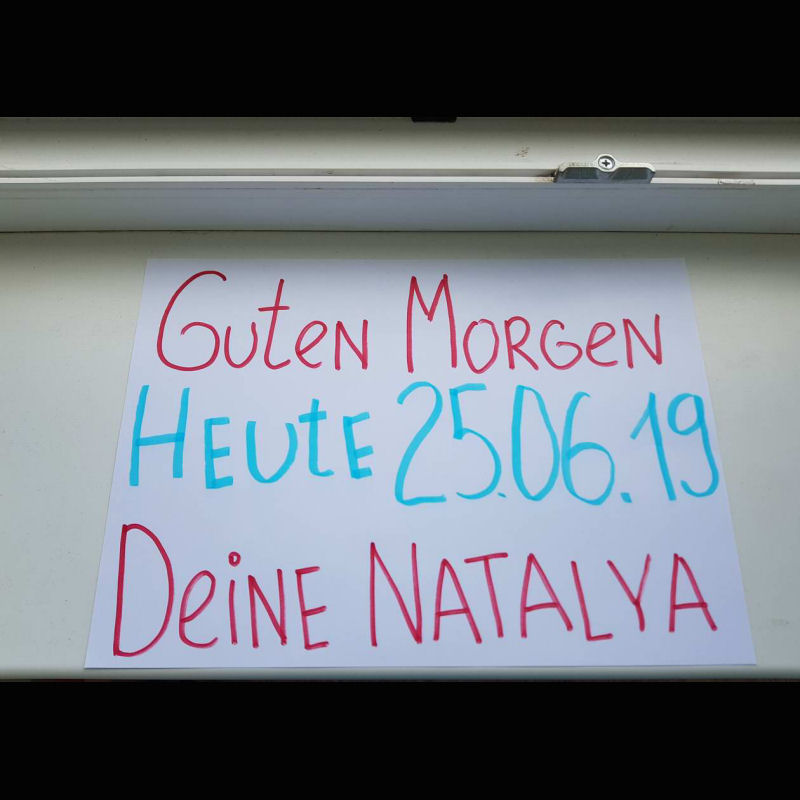 Guten Morgen
Heute 25.06.19
Deine Natalya